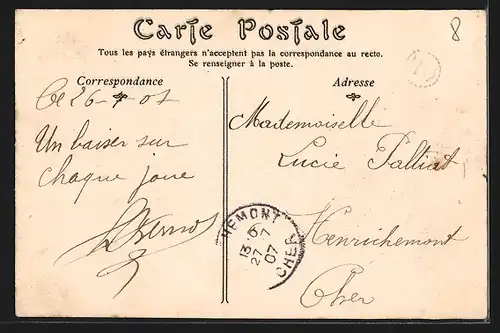 Carte Postale
Tous les pays étrangers n'acceptent pas la correspondance au recto.
Se renseigner à la poste.
8
Correspondance
Ce 26-7 07
Un baiser sur
chaque joue
Adresse
Mademoiselle
Lucie Palliat
Henrichemont
Cher
HEMONT
13
27-7
07
CHER